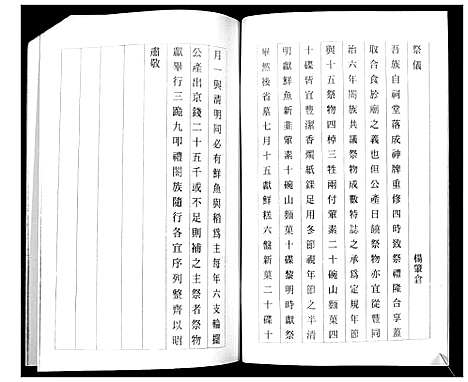 祭儀
楊肇倉
吾族自祠堂落成神牌重修四時致祭禮隆合享蓋
取合食於廟之義也但公產日饒祭物亦宜從豐同
治六年闔族共議祭物成數特誌之承為定規年節
與十五祭物四棹三牲兩付葷素二十碗山麵菓四
十碟皆宜豐潔香燭紙錁足用冬節視年節之半清
明獻鮮魚新韭葷素十碗山麵菓十碟黎明時獻祭
畢然後省墓七月十五獻鮮糕六盤新菜二十碟十
月一與清明同必有鮮魚與稻爲主每年六支輪擺
公產出京錢二十五千或不足則補之主祭者祭物
獻畢行三跪九叩禮闔族隨行各宜序列整齊以昭
肅敬